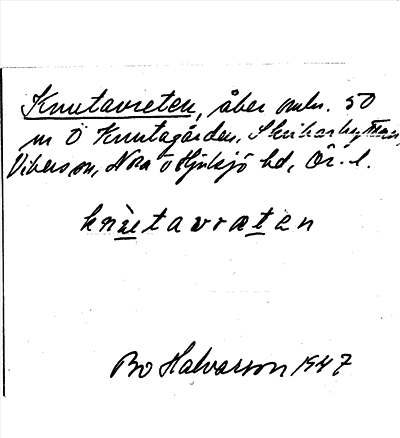 Knutavreten, åker omkr. 50
m Ö Knutagården, Skrikarhyttan,
Vikers sn, Nora o Hjulsjö bd, Ör. l.
knùtavrætən
Bo Halvarson 1947